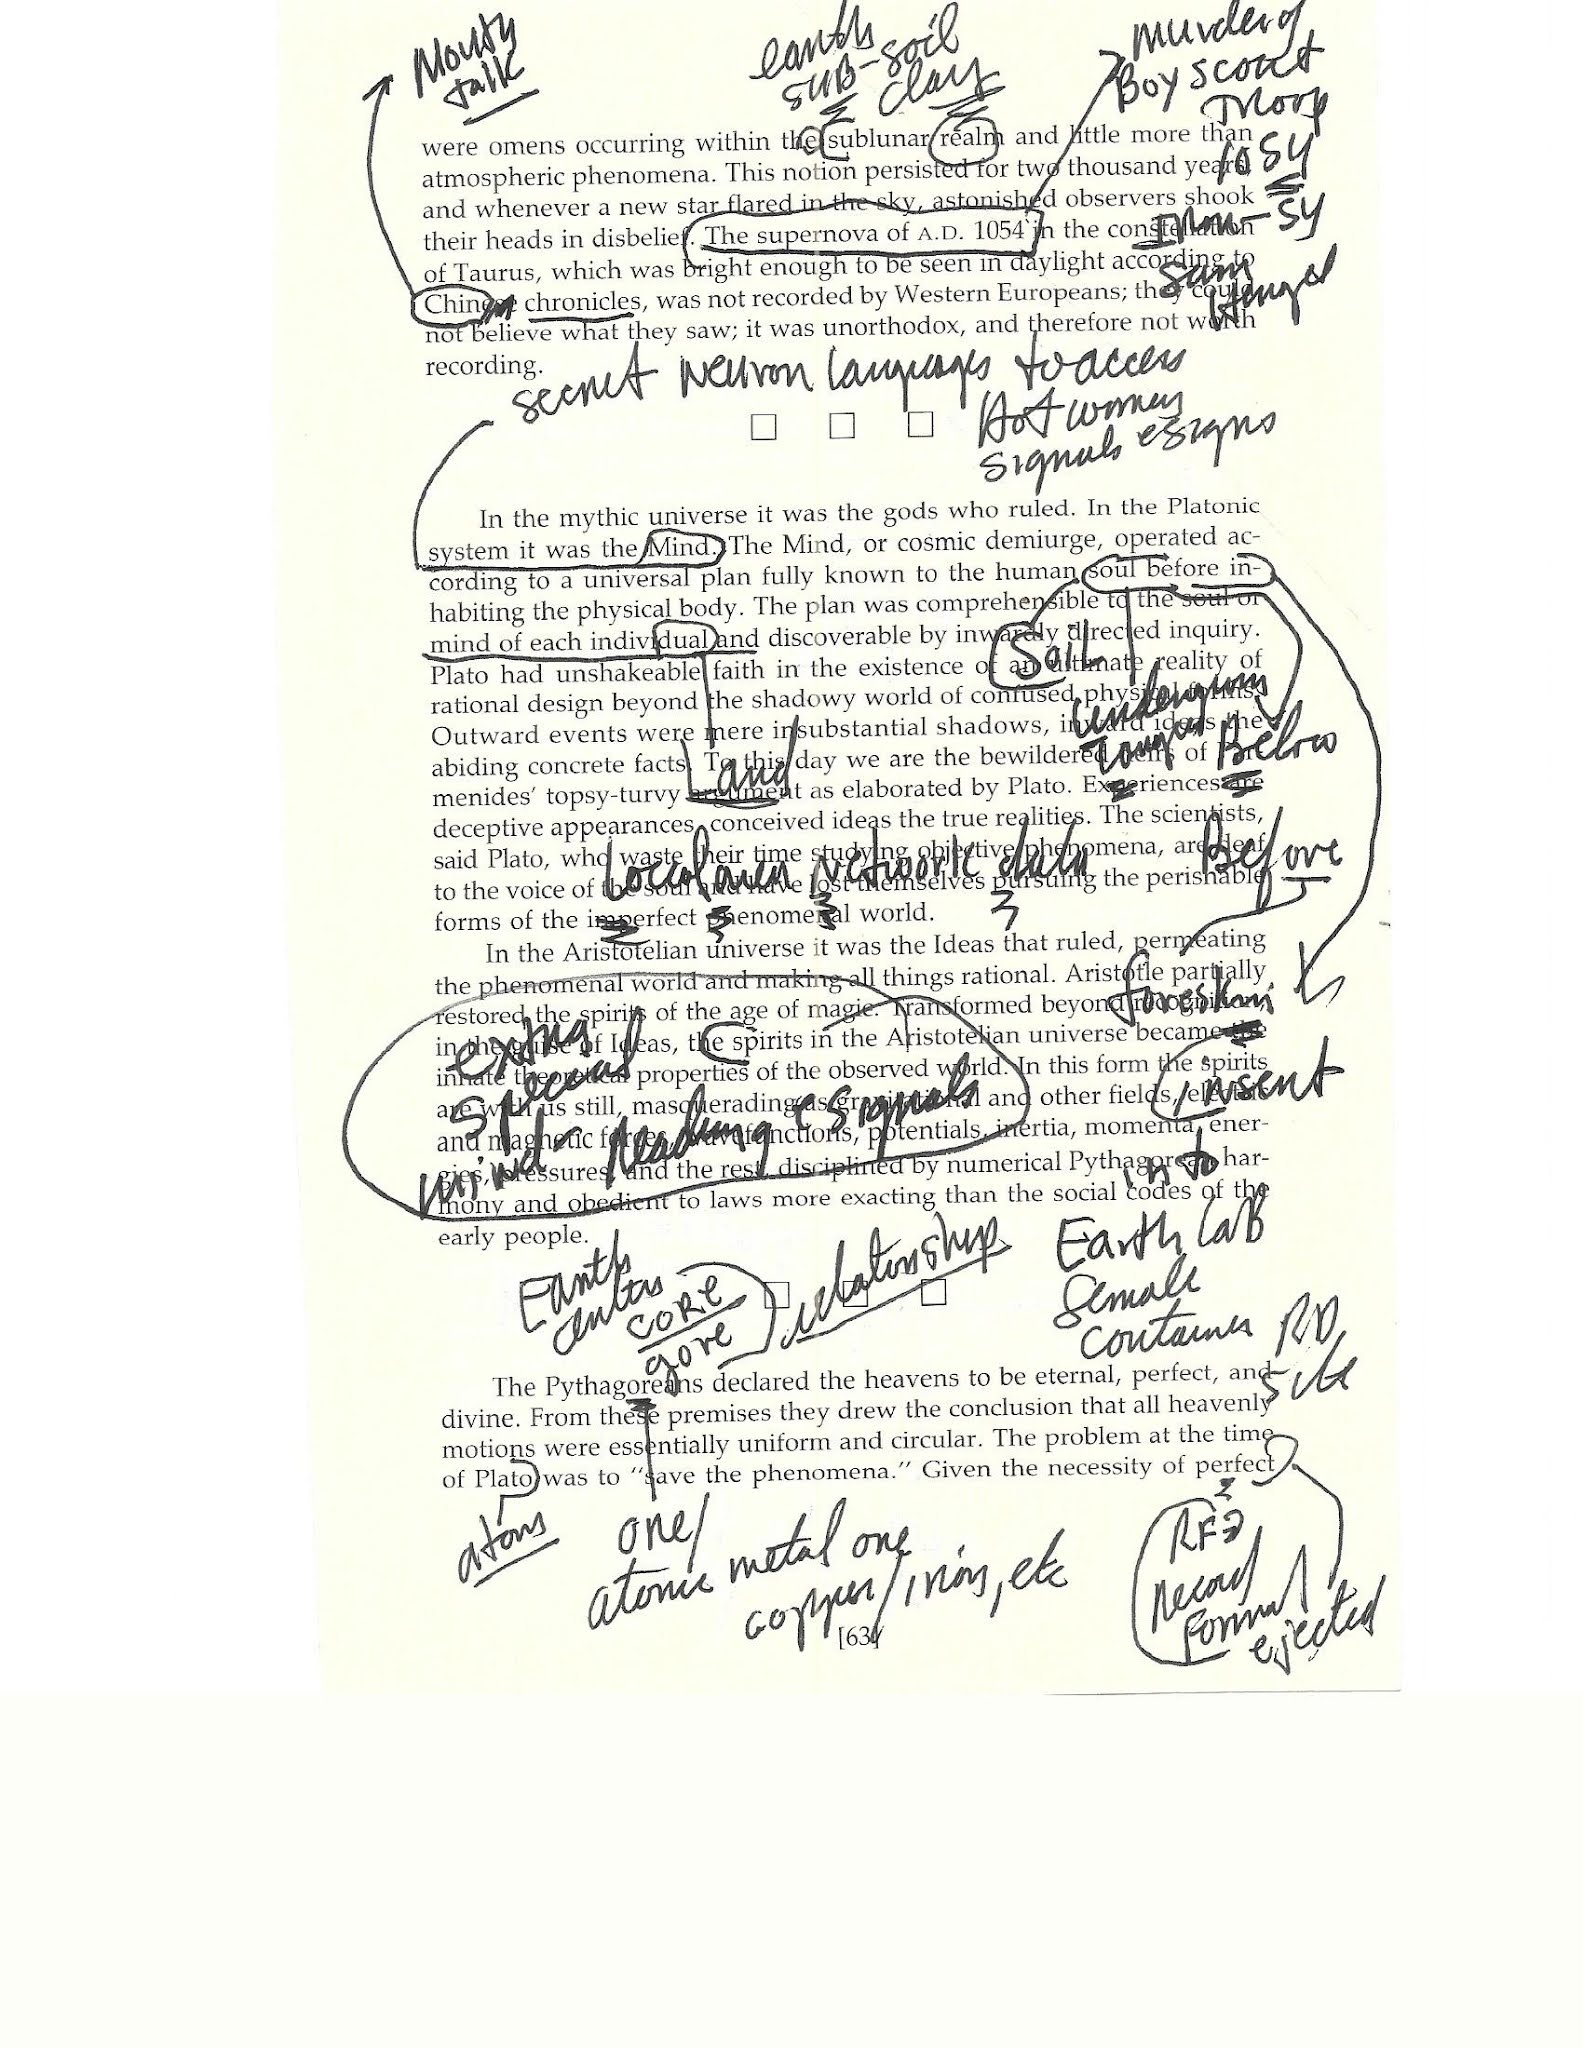 Mouth
talk
earth
sub-soil
clay
Murder of
Boy Scout
Troop
were omens occurring within the sublunar realm and little more than
atmospheric phenomena. This notion persisted for two thousand years,
and whenever a new star flared in the sky, astonished observers shook
their heads in disbelief. The supernova of A.D. 1054 in the constellation
of Taurus, which was bright enough to be seen in daylight according to
Chinese chronicles, was not recorded by Western Europeans; they could
not believe what they saw; it was unorthodox, and therefore not worth
recording.
Sam
secret Neuron languages to access
Hot women
signals & signs
In the mythic universe it was the gods who ruled. In the Platonic
system it was the Mind. The Mind, or cosmic demiurge, operated ac-
cording to a universal plan fully known to the human soul before in-
habiting the physical body. The plan was comprehensible to the soul or
mind of each individual and discoverable by inwardly directed inquiry.
Plato had unshakeable faith in the existence of an ultimate reality of
rational design beyond the shadowy world of confused physical forms.
Outward events were mere insubstantial shadows, inward ideas the
abiding concrete facts. To this day we are the bewildered heirs of
menides' topsy-turvy argument as elaborated by Plato. Experiences are
deceptive appearances, conceived ideas the true realities. The scientists,
said Plato, who waste their time studying objective phenomena, are deaf
to the voice of the soul and have lost themselves pursuing the perishable
forms of the imperfect phenomenal world.
Soil
Below
Land
network data
Before
In the Aristotelian universe it was the Ideas that ruled, permeating
the phenomenal world and making all things rational. Aristotle partially
restored the spirits of the age of magic. Transformed beyond recognition,
in the guise of Ideas, the spirits in the Aristotelian universe became the
innate theoretical properties of the observed world. In this form the spirits
are with us still, masquerading as gravitational and other fields, electric
and magnetic forces, wavefunctions, potentials, inertia, momenta, ener-
gies, pressures, and the rest, disciplined by numerical Pythagorean har-
mony and obedient to laws more exacting than the social codes of the
early people.
foreskin
insert
into
special
mind-reading & signals
Earth
core
gore
relationship
Earth Lab
female
container RD
site
The Pythagoreans declared the heavens to be eternal, perfect, and
divine. From these premises they drew the conclusion that all heavenly
motions were essentially uniform and circular. The problem at the time
of Plato was to "save the phenomena." Given the necessity of perfect
atoms
one/
atomic metal one
copper/iron, etc
Record
Format
ejected
[63]